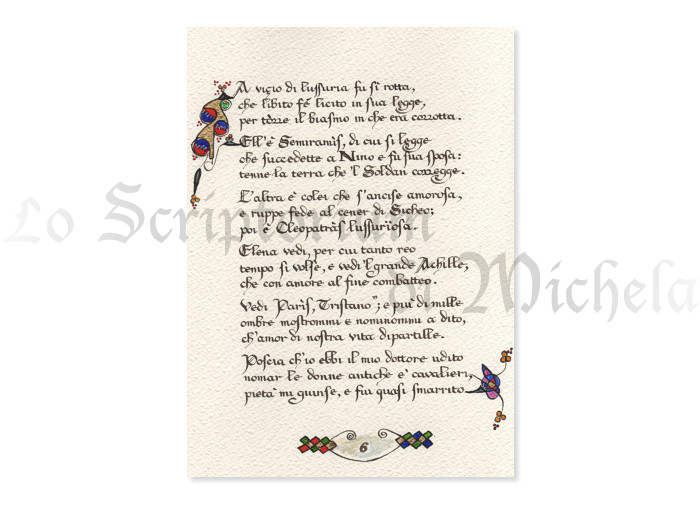 A viçio di lussuria fu sì rotta,
che libito fé licito in sua legge,
per tòrre il biasmo in che era corrotta.
Ell'è Semiramìs, di cui si legge
che succedette a Nino e fu sua sposa:
tenne la terra che 'l Soldan corregge.
L'altra è colei che s'ancise amorosa,
e ruppe fede al cener di Sicheo;
poi è Cleopatràs lussurïosa.
Elena vedi, per cui tanto reo
tempo si volse, e vedi 'l grande Achille,
che con amore al fine combatteo.
Vedi Parìs, Tristano"; e più di mille
ombre mostrommi e nominommi a dito,
ch'amor di nostra vita dipartille.
Poscia ch'io ebbi il mio dottore udito
nomar le donne antiche e' cavalieri,
pietà mi giunse, e fui quasi smarrito
6
Lo Scriptorium
di Michela